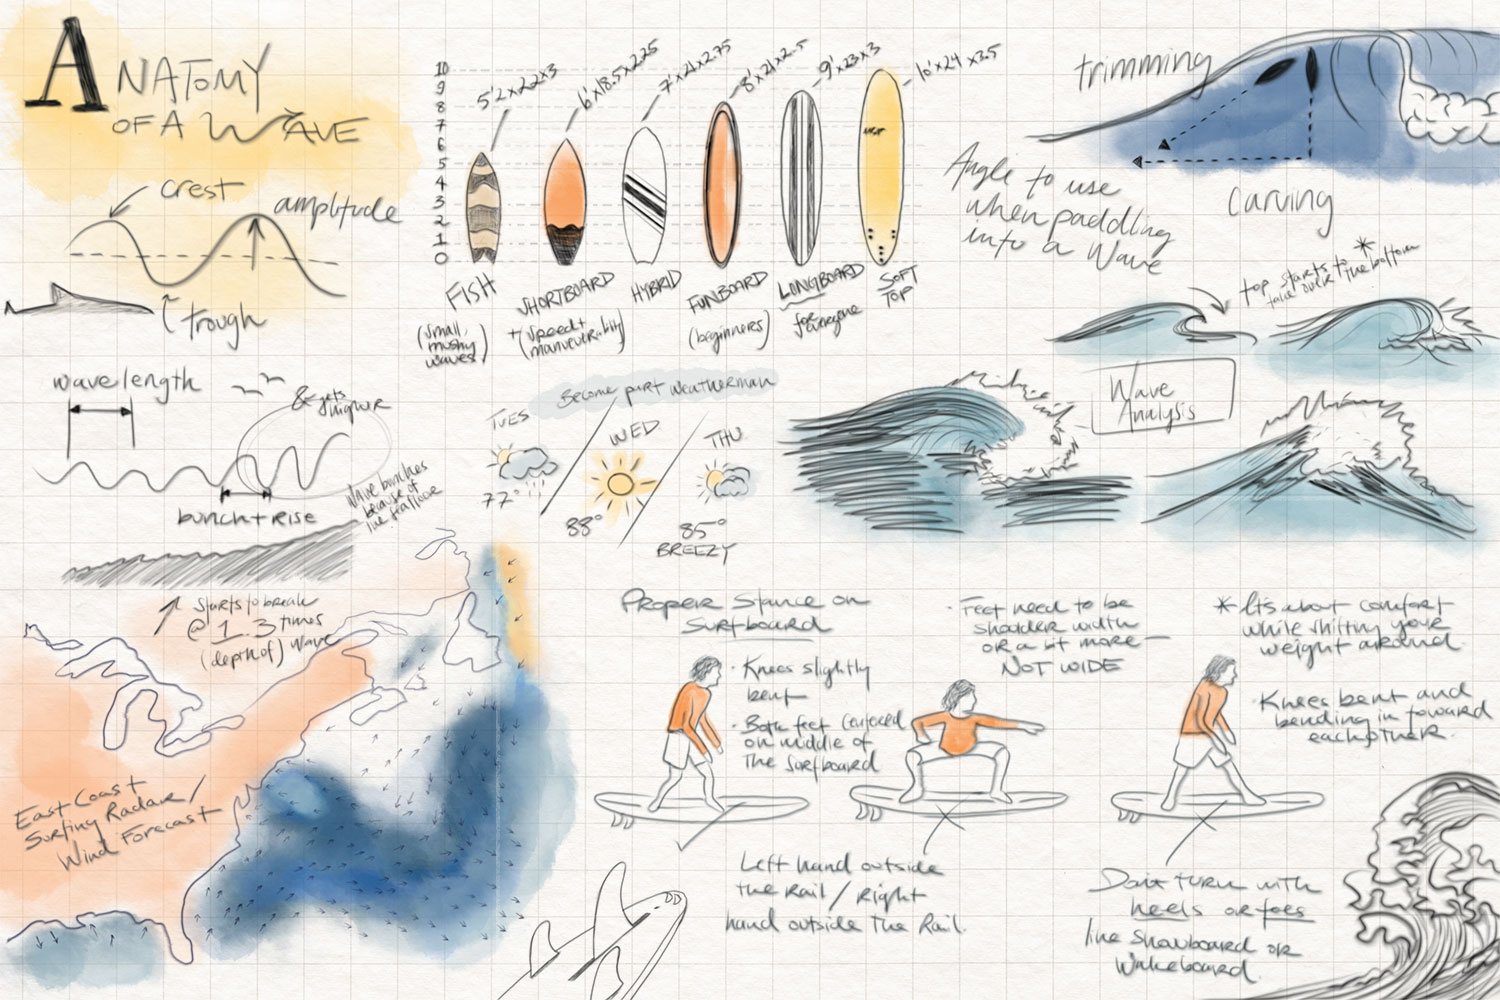 ANATOMY
OF A WAVE
crest
amplitude
trough
10
9
8
7
6
5
4
3
2
1
0
5'2x22x3
6'x18.5x2.25
7'x21x2.75
8'x21x2.5
9'x23x3
10'x24x3.5
FISH
(small,
mushy
waves)
SHORTBOARD
+(speed+
maneuverability)
HYBRID
FUNBOARD
(beginners)
LONGBOARD
for everyone
SOFT
TOP
trimming
Angle to use
when paddling
into a Wave
carving
top starts to
take over the bottom
*
Wave
Analysis
wavelength
& gets
higher
bunch + rise
Wave bunches
because of
the seafloor
starts to break
@ 1.3 times
(depth of) wave
Become part weatherman
TUES
77°
WED
88°
THU
85°
BREEZY
East Coast
Surfing Radar/
Wind Forecast
Proper Stance on
Surfboard
· Knees slightly
bent
· Both feet centered
on middle of
the surfboard
· Feet need to be
shoulder width
or a bit more –
NOT WIDE
* It's about comfort
while shifting your
weight around.
· Knees bent and
bending in toward
each other.
Left hand outside
the Rail / Right
hand outside the Rail.
Don't turn with
heels or toes
like Snowboard or
Wakeboard.